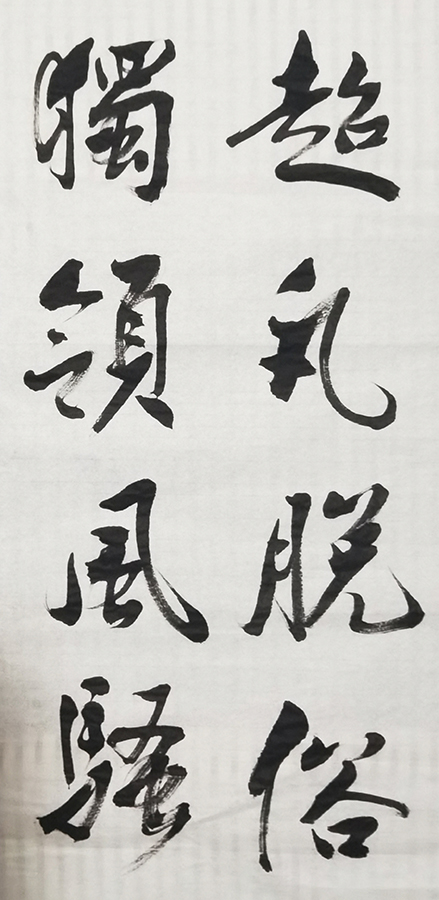 超凡脱俗
獨領風騷